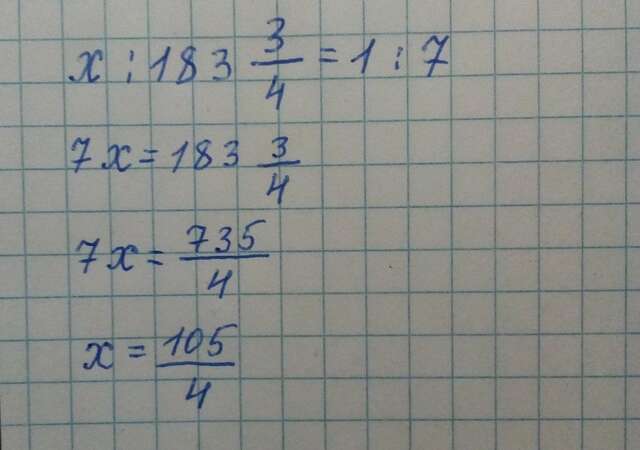 x : 183 3/4 = 1 : 7
7x = 183 3/4
7x = 735/4
x = 105/4